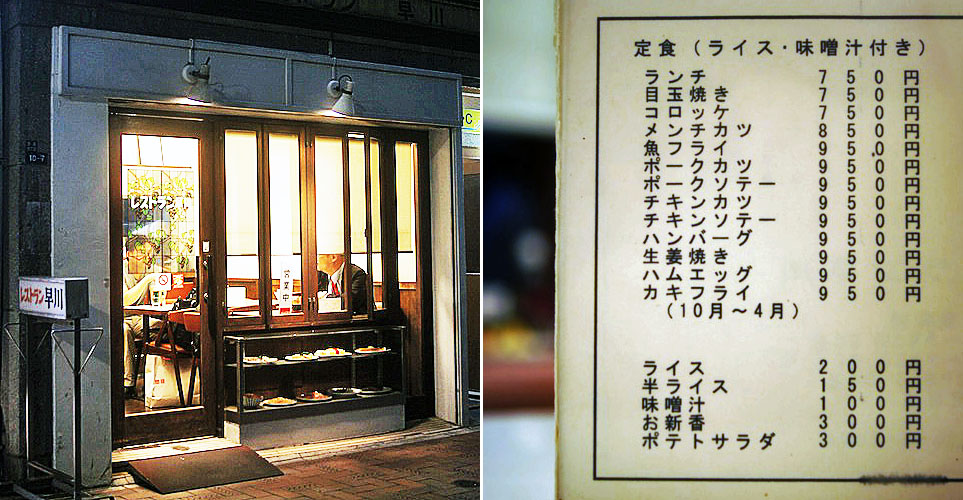 早川
10-7
レストラン
営業中
レストラン早川
定食(ライス・味噌汁付き)
ランチ 750円
目玉焼き 750円
コロッケ 750円
メンチカツ 850円
魚フライ 950円
ポークカツ 950円
ポークソテー 950円
チキンカツ 950円
チキンソテー 950円
ハンバーグ 950円
生姜焼き 950円
ハムエッグ 950円
カキフライ 950円
(10月~4月)
ライス 200円
半ライス 150円
味噌汁 100円
お新香 300円
ポテトサラダ 300円